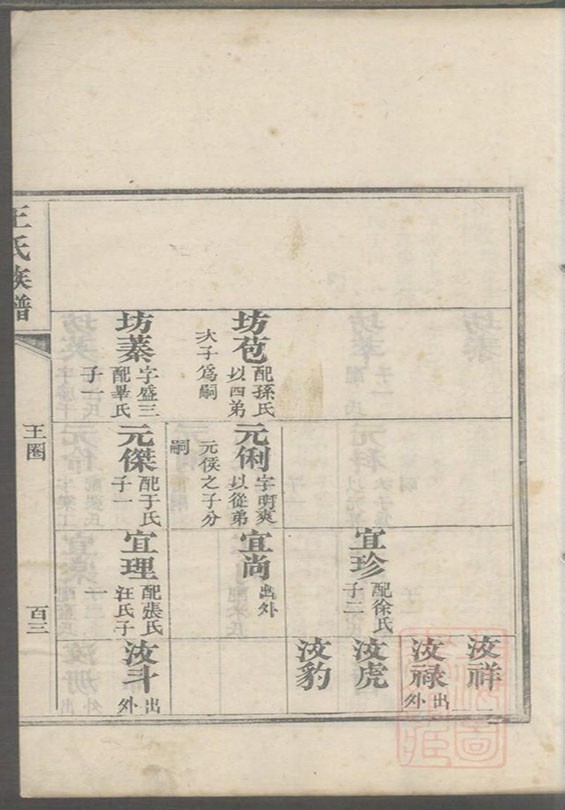 坊苞 配孫氏 以四弟
大子爲嗣
坊蓁 字盛三 配畢氏 子一
元俐 字明爽 以從弟
元侯之子分
嗣
元傑 配于氏 子一
宜珍 配徐氏 子二
宜尚 出外
宜理 配張氏 汪氏子
一
汝祥
汝祿 出外
汝虎
汝豹
汝斗 出外
王氏族譜
王圈
百三